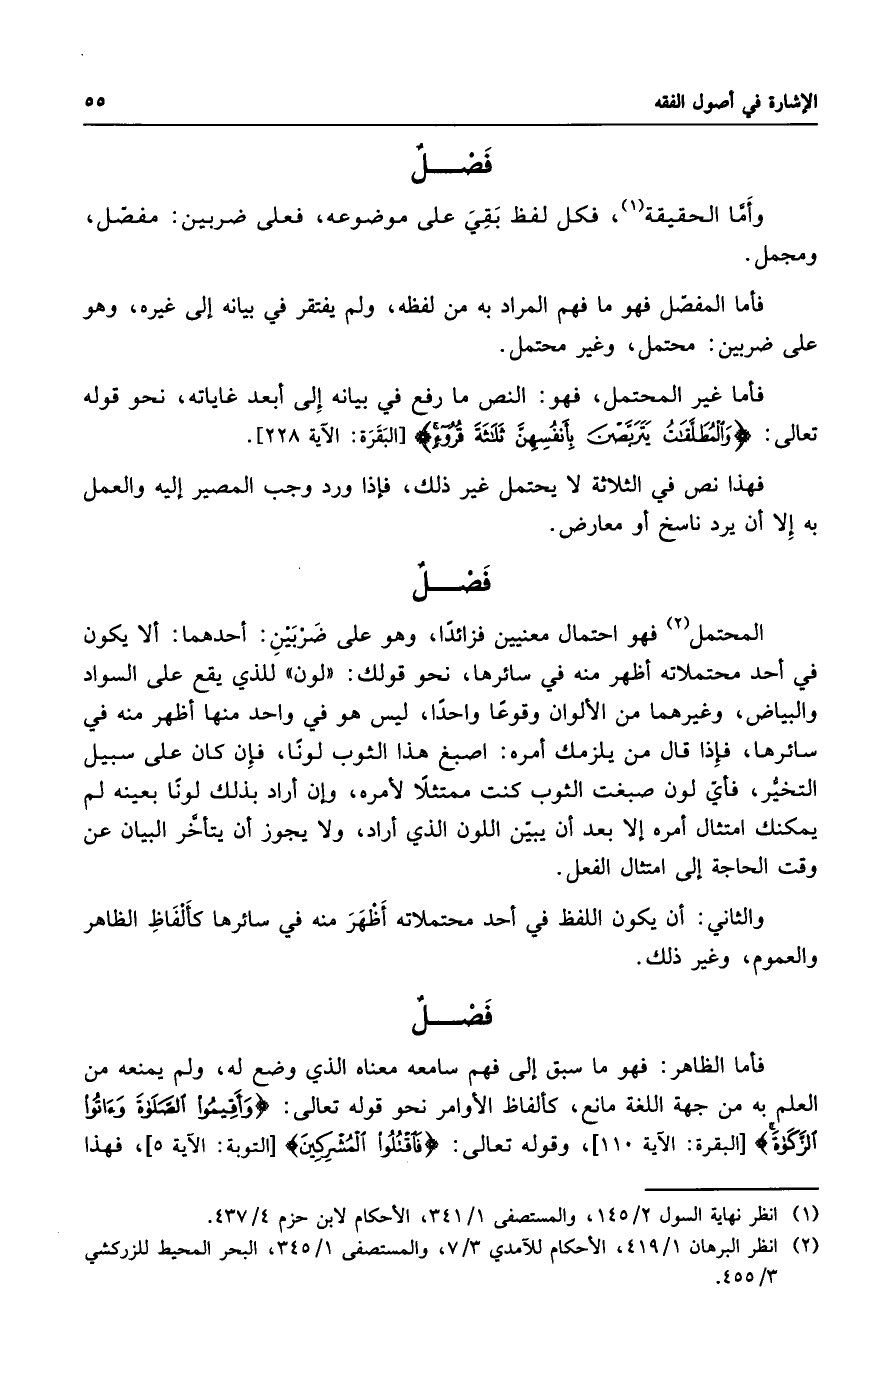 الإشارة في أصول الفقه ٥٥
فَصْــــلٌ
وأَمَّا الحقيقة(١)، فكل لفظ بَقِيَ على موضوعه، فعلى ضربين: مفصّل،
ومجمل.
فأما المفصّل فهو ما فهم المراد به من لفظه، ولم يفتقر في بيانه إلى غيره، وهو
على ضربين: محتمل، وغير محتمل.
فأما غير المحتمل، فهو: النص ما رفع في بيانه إِلى أبعد غاياته، نحو قوله
تعالى: ﴿وَٱلْمُطَلَّقَٰتُ يَتَرَبَّصْنَ بِأَنفُسِهِنَّ ثَلَٰثَةَ قُرُوٓءٍ﴾ [البَقَرَة: الآية ٢٢٨].
فهذا نص في الثلاثة لا يحتمل غير ذلك، فإذا ورد وجب المصير إليه والعمل
به إِلا أن يرد ناسخ أو معارض.
فَصْــــلٌ
المحتمل(٢) فهو احتمال معنيين فزائدًا، وهو على ضَرْبَيْنِ: أحدهما: ألا يكون
في أحد محتملاته أظهر منه في سائرها، نحو قولك: «لون» للذي يقع على السواد
والبياض، وغيرهما من الألوان وقوعًا واحدًا، ليس هو في واحد منها أظهر منه في
سائرها، فإذا قال من يلزمك أمره: اصبغ هذا الثوب لونًا، فإن كان على سبيل
التخيُّر، فأيّ لون صبغت الثوب كنت ممتثلًا لأمره، وإن أراد بذلك لونًا بعينه لم
يمكنك امتثال أمره إلا بعد أن يبيّن اللون الذي أراد، ولا يجوز أن يتأخَّر البيان عن
وقت الحاجة إلى امتثال الفعل.
والثاني: أن يكون اللفظ في أحد محتملاته أَظْهَرَ منه في سائرها كأَلْفَاظِ الظاهر
والعموم، وغير ذلك.
فَصْــــلٌ
فأما الظاهر: فهو ما سبق إلى فهم سامعه معناه الذي وضع له، ولم يمنعه من
العلم به من جهة اللغة مانع، كألفاظ الأوامر نحو قوله تعالى: ﴿وَأَقِيمُوا۟ ٱلصَّلَوٰةَ وَءَاتُوا۟
ٱلزَّكَوٰةَۚ﴾ [البقرة: الآية ١١٠]، وقوله تعالى: ﴿فَٱقْتُلُوا۟ ٱلْمُشْرِكِينَ﴾ [التوبة: الآية ٥]، فهذا
(١) انظر نهاية السول ١٤٥/٢، والمستصفى ٣٤١/١، الأحكام لابن حزم ٤٣٧/٤.
(٢) انظر البرهان ٤١٩/١، الأحكام للآمدي ٧/٣، والمستصفى ٣٤٥/١، البحر المحيط للزركشي
٤٥٥/٣.